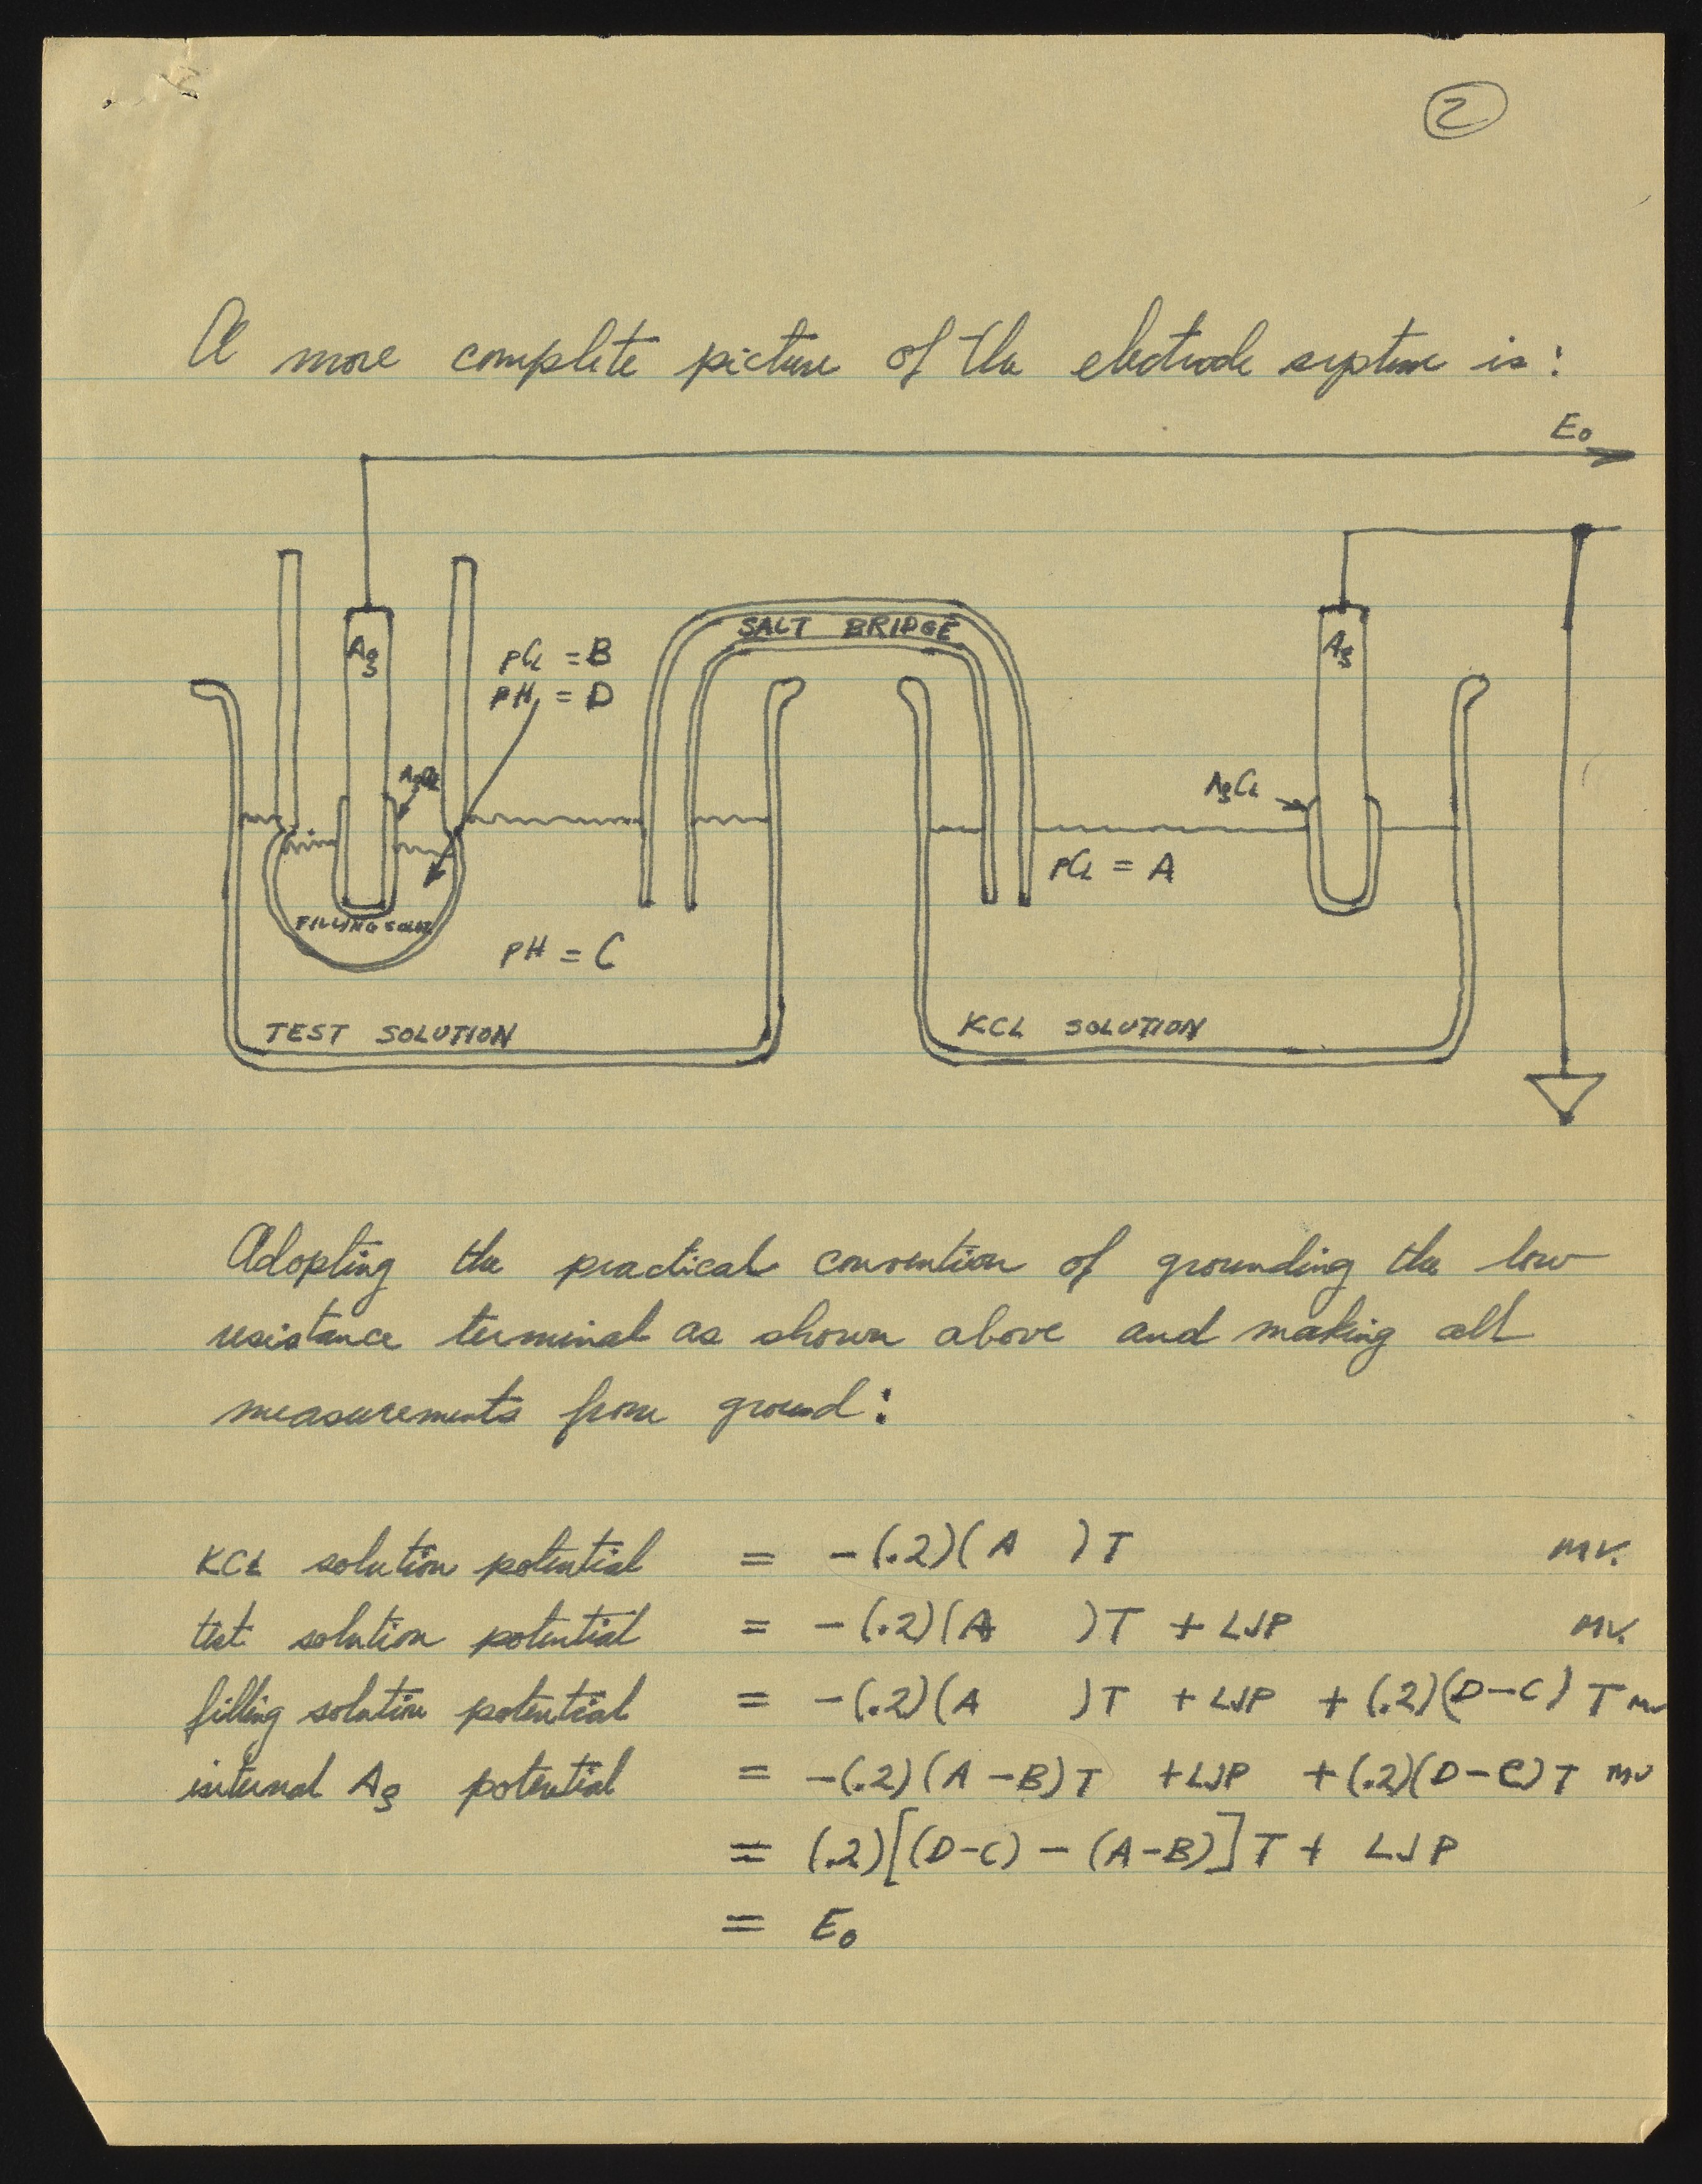 2
A more complete picture of the electrode system is:
E₀
SALT BRIDGE
Ag
Ag
pCl = B
pH = D
AgCl
AgCl
pCl = A
FILLING SOLN
pH = C
TEST SOLUTION
KCL SOLUTION
Adopting the practical convention of grounding the low
resistance terminal as shown above and making all
measurements from ground:
KCL solution potential = -(.2)(A )T mv.
test solution potential = -(.2)(A )T + LJP mv.
filling solution potential = -(.2)(A )T + LJP + (.2)(D-C) T mv
internal Ag potential = -(.2)(A-B)T + LJP + (.2)(D-C)T mv
= (.2)[(D-C) - (A-B)]T + LJP
= E₀